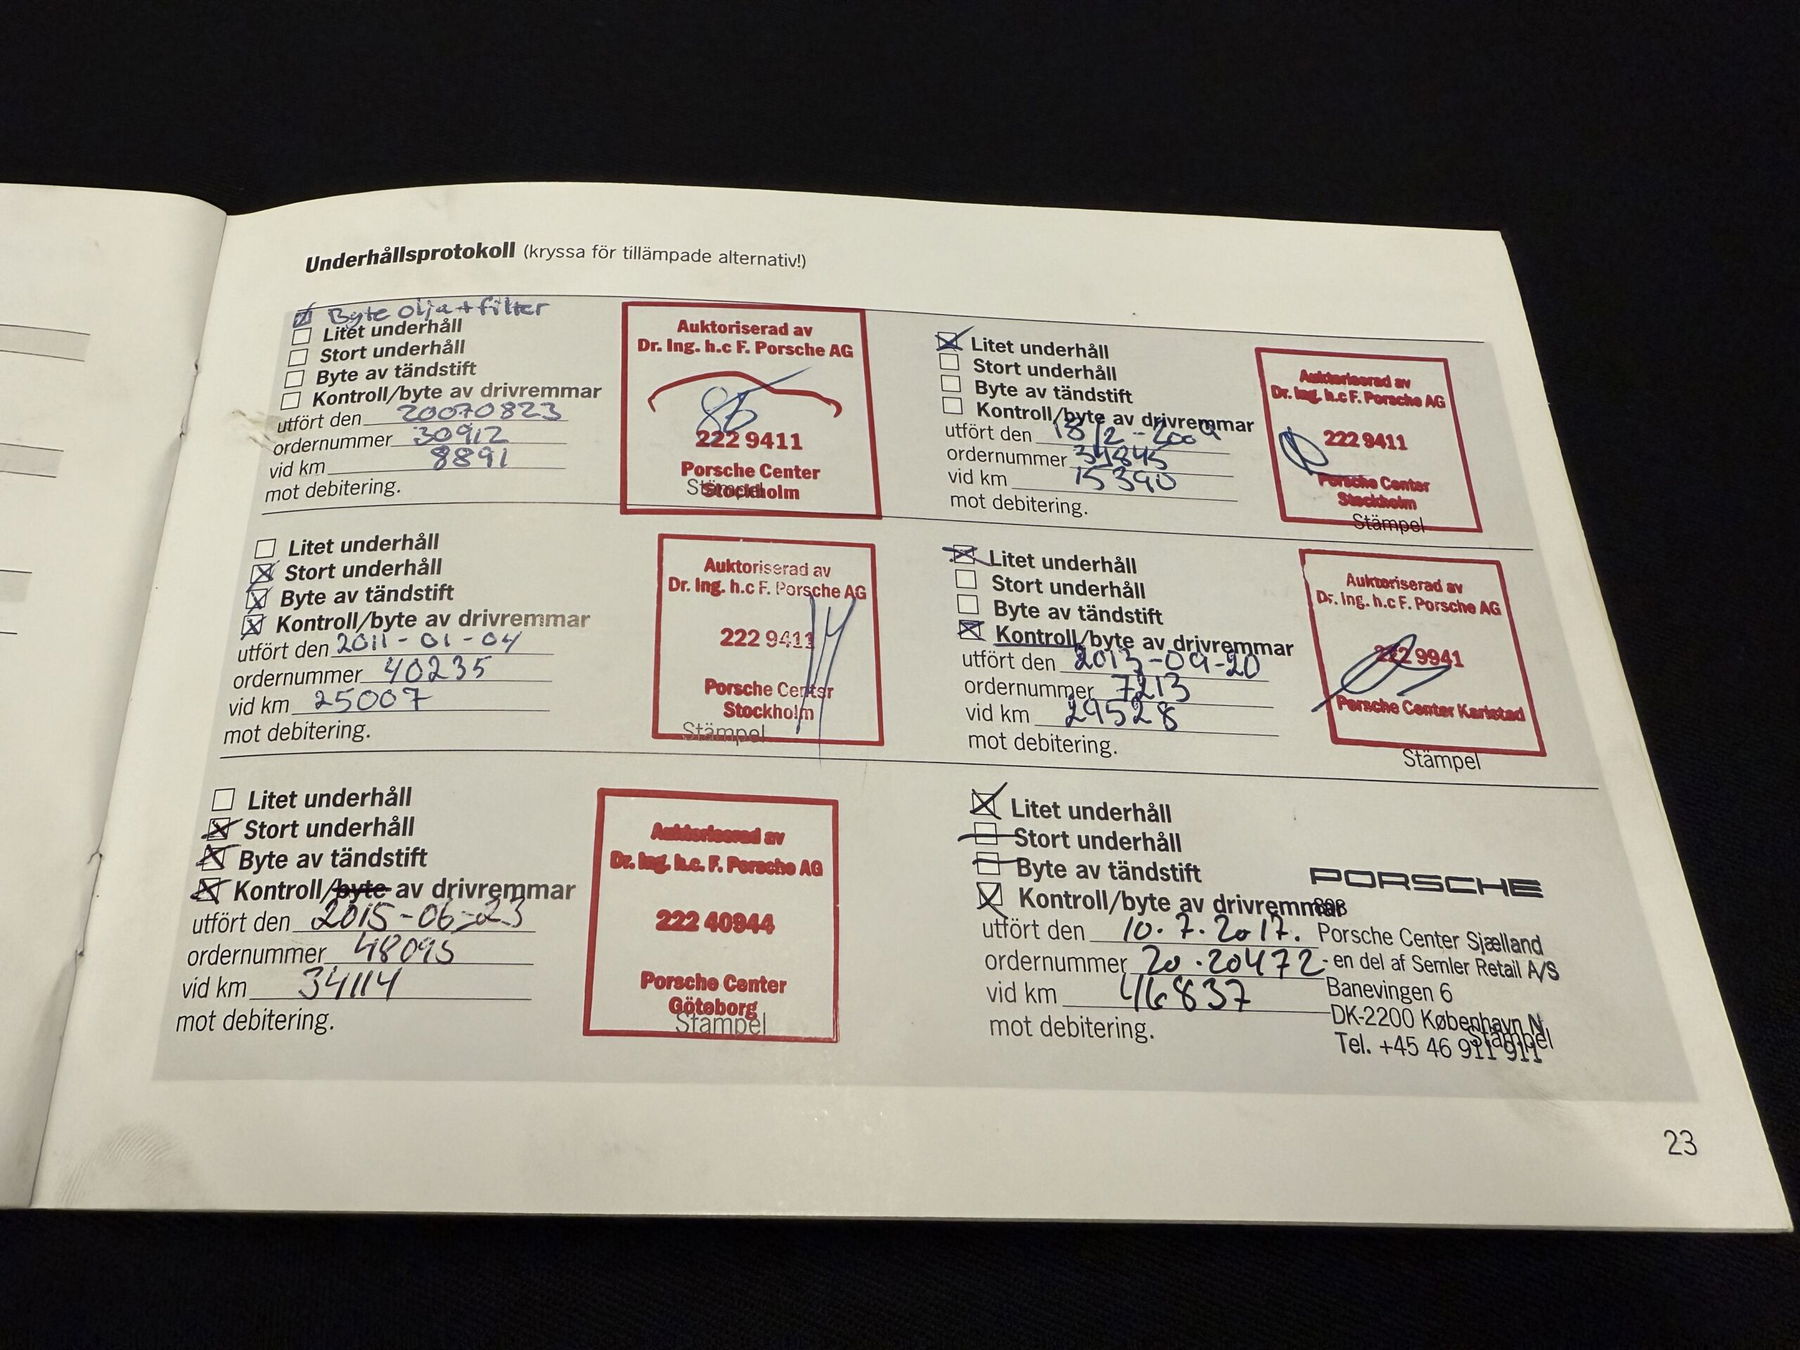 Underhållsprotokoll (kryssa för tillämpade alternativ!)
Byte olja + filter
Litet underhåll
Stort underhåll
Byte av tändstift
Kontroll/byte av drivremmar
utfört den 20070823
ordernummer 30912
vid km 8891
mot debitering.
Auktoriserad av
Dr. Ing. h.c F. Porsche AG
222 9411
Porsche Center
Stockholm
Stämpel
Litet underhåll
Stort underhåll
Byte av tändstift
Kontroll/byte av drivremmar
utfört den 18/2-2009
ordernummer 34845
vid km 15390
mot debitering.
Auktoriserad av
Dr. Ing. h.c F. Porsche AG
222 9411
Porsche Center
Stockholm
Stämpel
Litet underhåll
Stort underhåll
Byte av tändstift
Kontroll/byte av drivremmar
utfört den 2011-01-04
ordernummer 40235
vid km 25007
mot debitering.
Auktoriserad av
Dr. Ing. h.c F. Porsche AG
222 9411
Porsche Center
Stockholm
Stämpel
Litet underhåll
Stort underhåll
Byte av tändstift
Kontroll/byte av drivremmar
utfört den 2013-09-20
ordernummer 7213
vid km 29528
mot debitering.
Auktoriserad av
Dr. Ing. h.c F. Porsche AG
222 9941
Porsche Center Karlstad
Stämpel
Litet underhåll
Stort underhåll
Byte av tändstift
Kontroll/byte av drivremmar
utfört den 2015-06-23
ordernummer 48095
vid km 34114
mot debitering.
Auktoriserad av
Dr. Ing. h.c. F. Porsche AG
222 40944
Porsche Center
Göteborg
Stämpel
Litet underhåll
Stort underhåll
Byte av tändstift
Kontroll/byte av drivremmar
utfört den 10.7.2017.
ordernummer 20.20472
vid km 46837
mot debitering.
PORSCHE
Porsche Center Sjælland
- en del af Semler Retail A/S
Banevingen 6
DK-2200 København N
Tel. +45 46 911 911
Stämpel
23